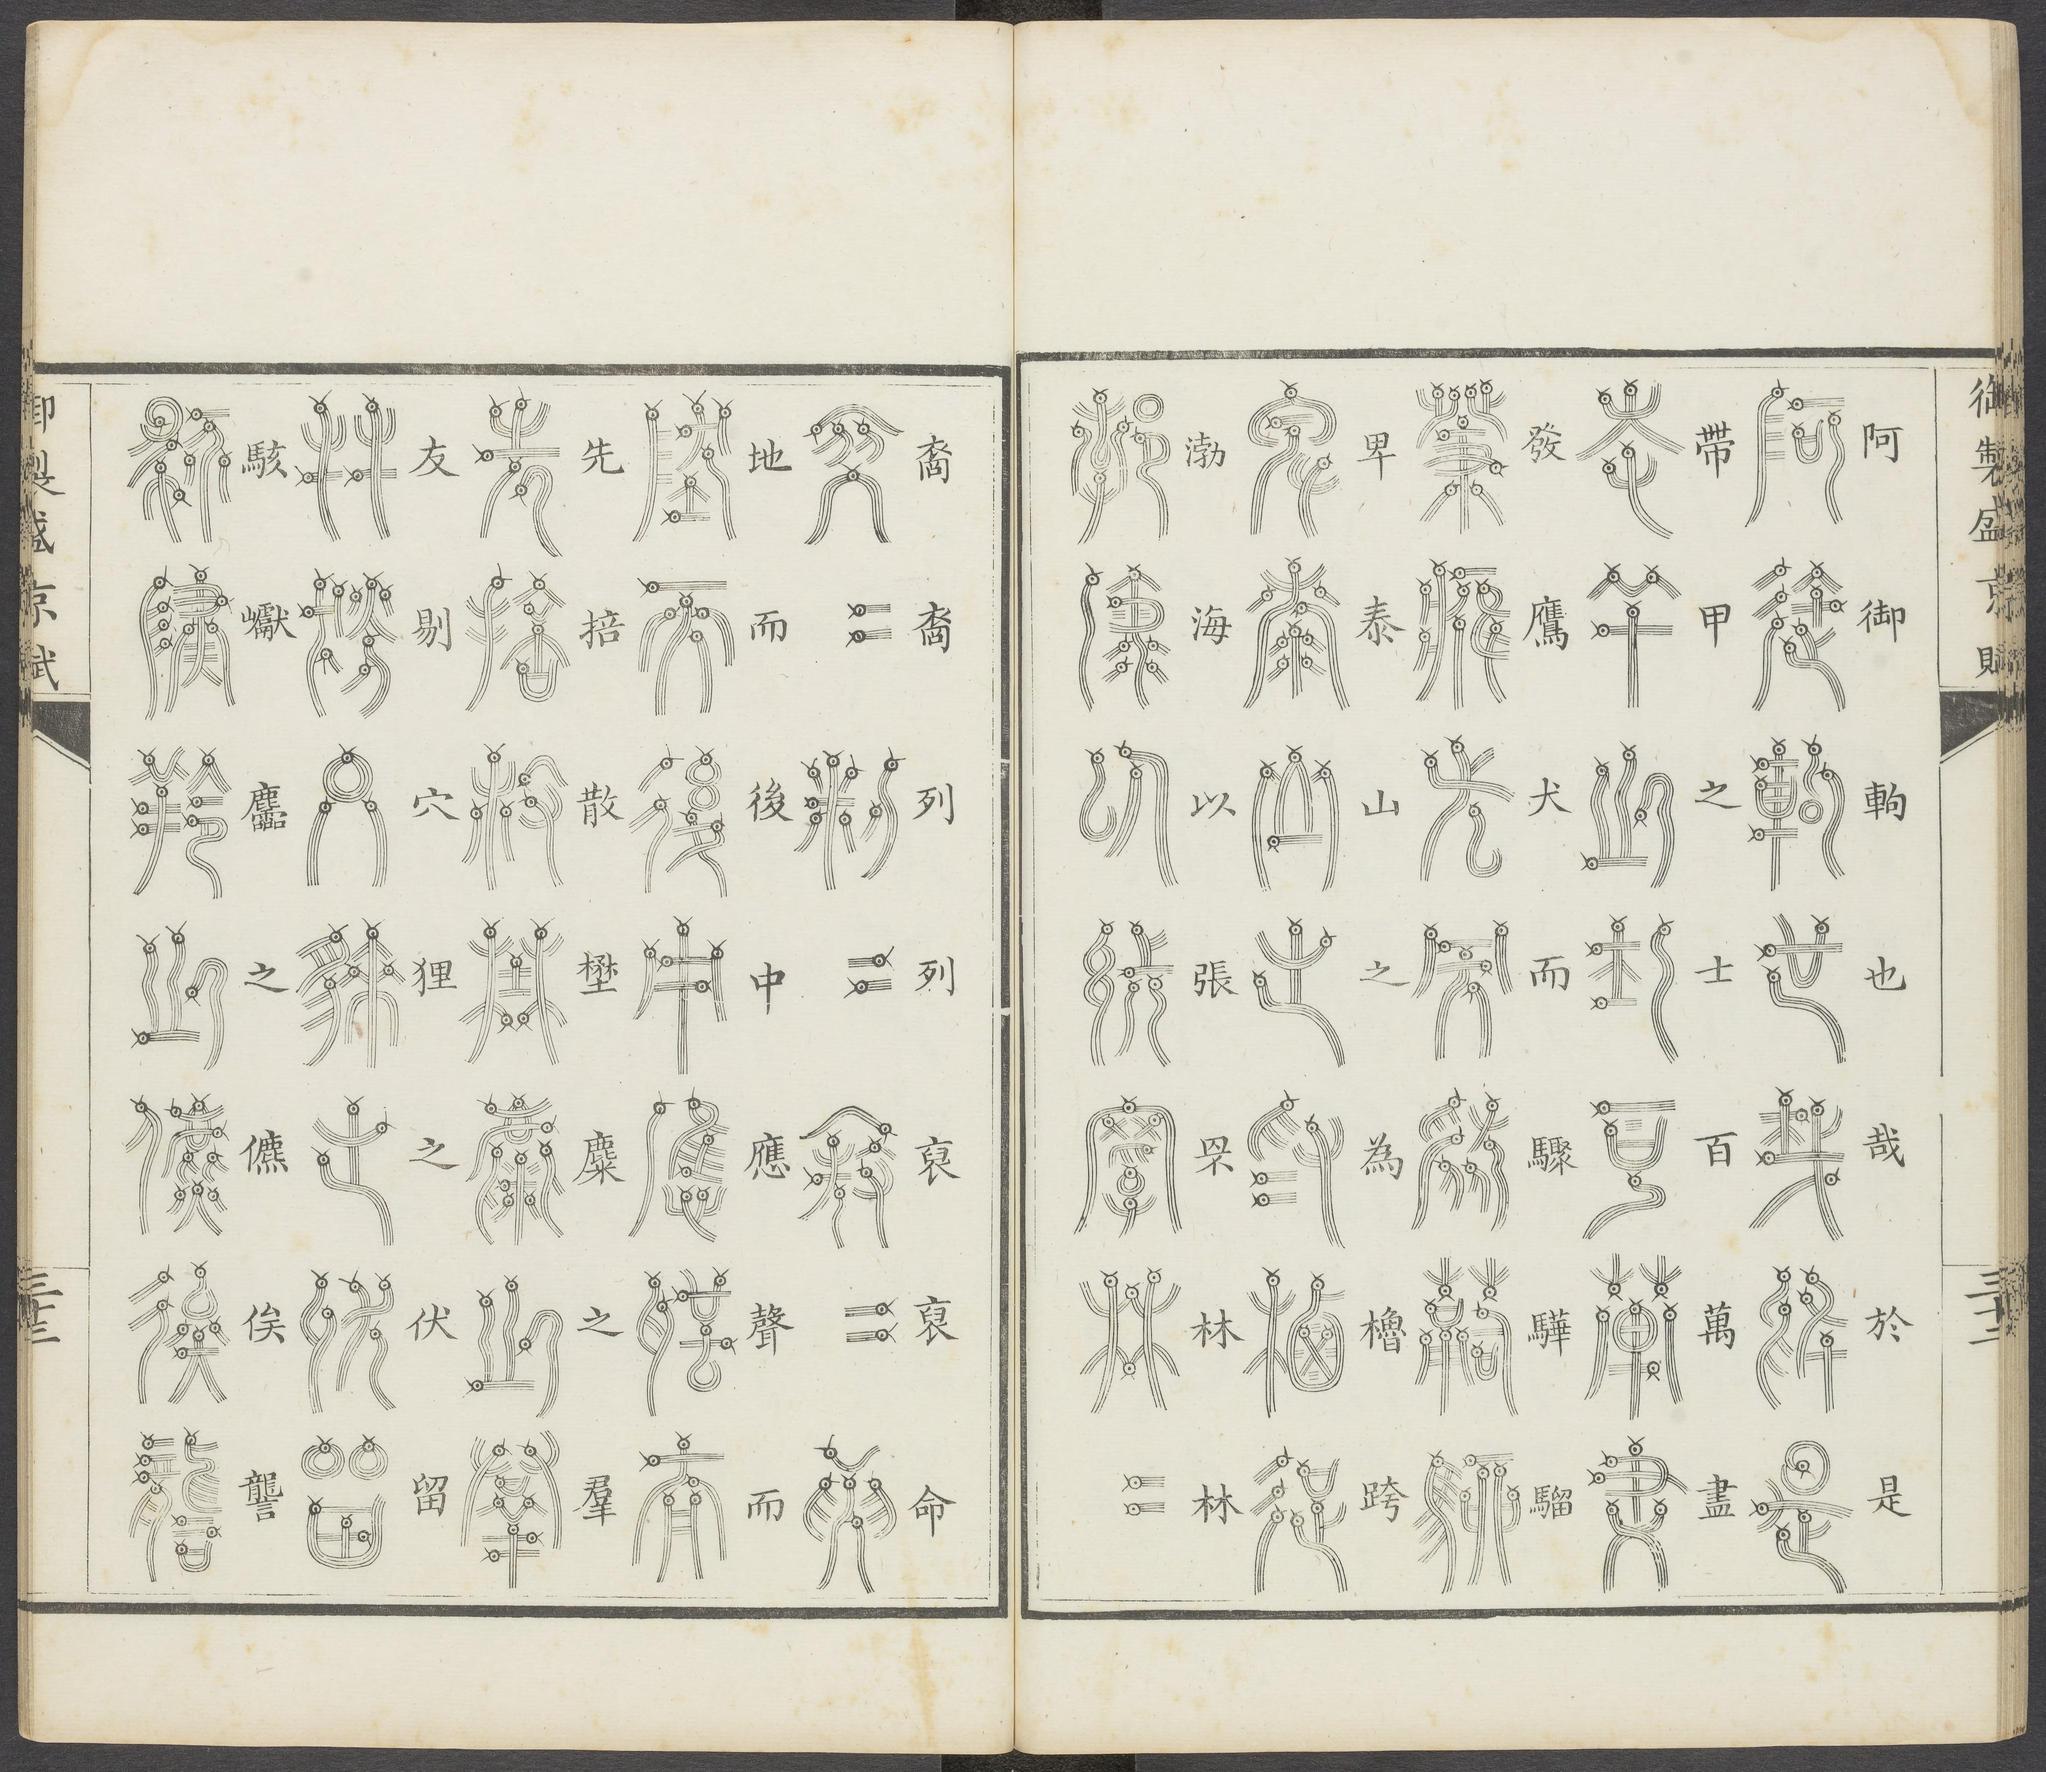 御製盛京賦
三十二
阿御軥也哉於是
帶甲之士百萬盡
發鷹犬而驟驊騮
畢泰山之為櫓跨
渤海以張罘林林
裔裔列列裒裒命
地而後中應聲而
先掊散壄麋之羣
友剔穴狸之伏留
駭巘麢之儦俟讋
御製盛京賦
三十三